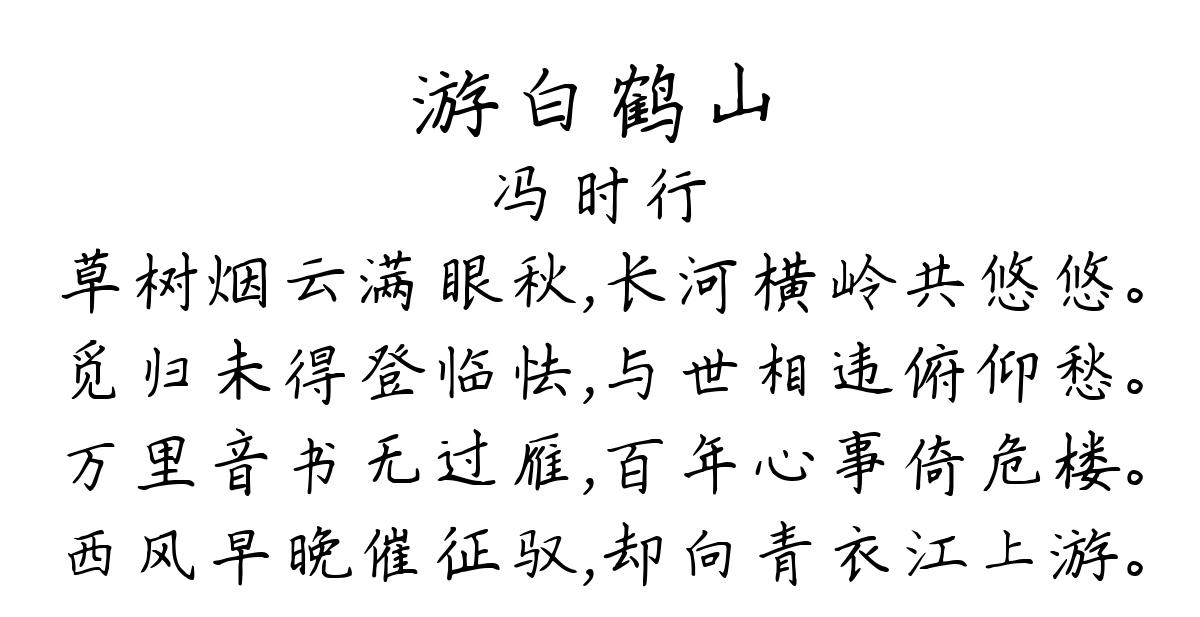 游白鹤山
冯时行
草树烟云满眼秋,长河横岭共悠悠。
觅归未得登临怯,与世相违俯仰愁。
万里音书无过雁,百年心事倚危楼。
西风早晚催征驭,却向青衣江上游。